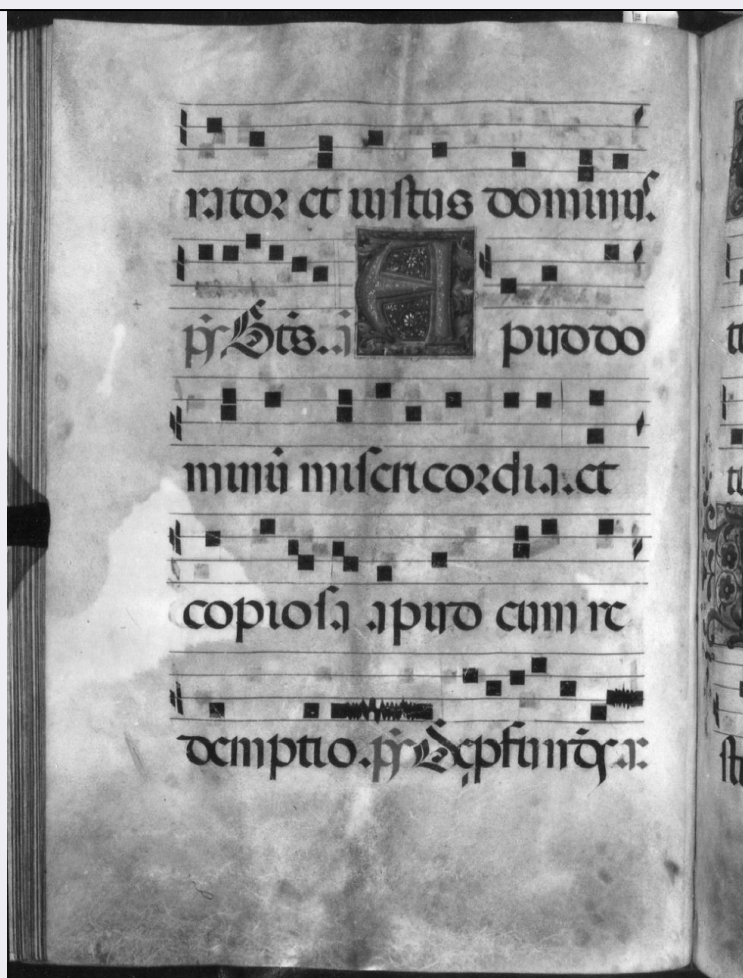 rator et iustus dominus.
ps̄. Sc̄ts. ā A pud do
minū misericordia. et
copiosa apud eum re
demptio. ps̄. De pfundꝭ. a: